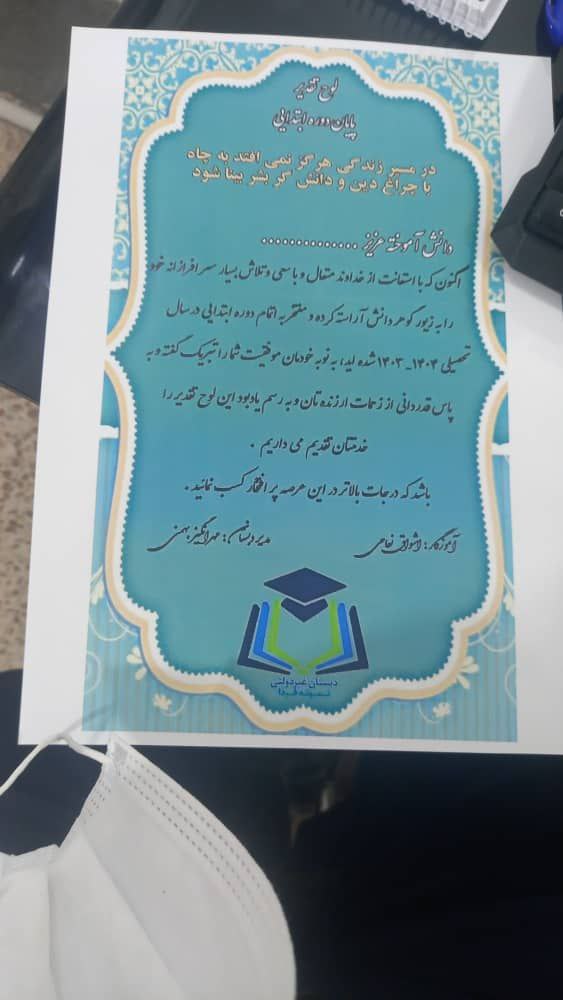 لوح تقدیر
پایان دوره ابتدایی
در مسیر زندگی هرگز نمی افتد به چاه
با چراغ دین و دانش گر بشر بینا شود
دانش آموخته عزیز ..............
اکنون که با استعانت از خداوند متعال و با سعی و تلاش بسیار سرافرازانه خود
را به زیور گوهر دانش آراسته کرده و مفتخر به اتمام دوره ابتدایی در سال
تحصیلی ۱۴۰۴_۱۴۰۳ شده اید، به نوبه خودمان موفقیت شما را تبریک گفته و به
پاس قدردانی از زحمات ارزنده تان و به رسم یادبود این لوح تقدیر را
خدمتتان تقدیم می داریم .
باشد که درجات بالاتر در این عرصه پر افتخار کسب نمائید .
آموزگار: اشواق نعامی مدیر دبستان: مهرانگیز بهمنی
دبستان غیردولتی
نمونه فردا